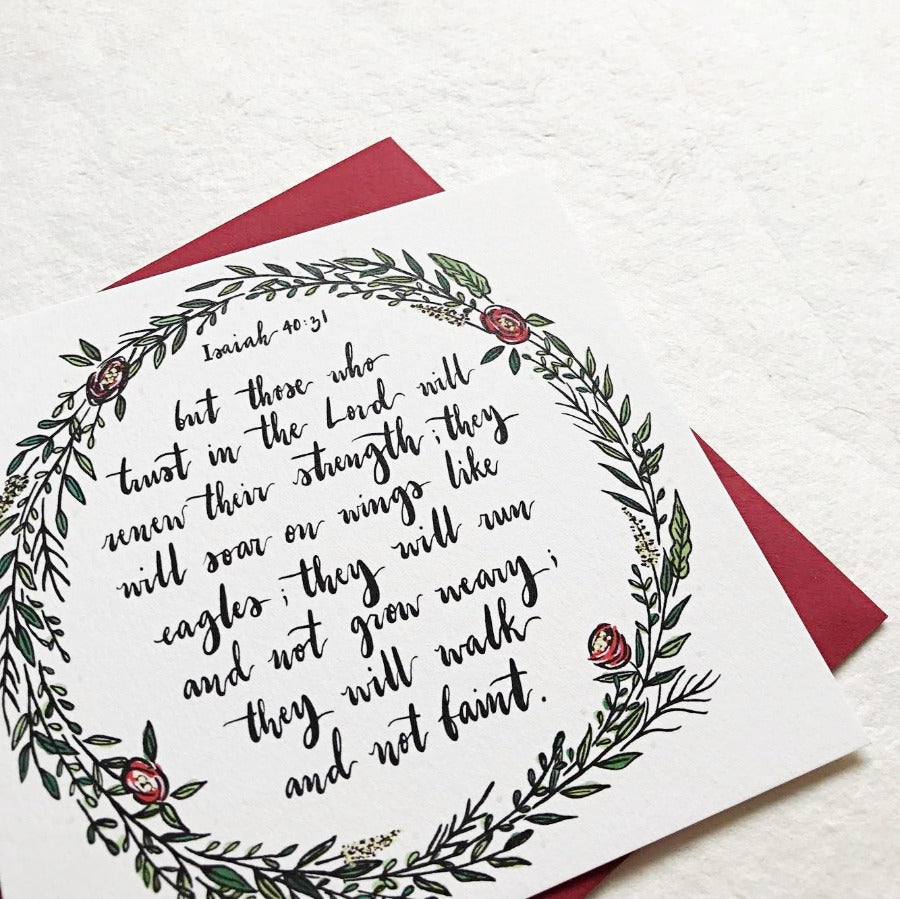 Isaiah 40:31
but those who
trust in the Lord will
renew their strength; they
will soar on wings like
eagles; they will run
and not grow weary;
they will walk
and not faint.